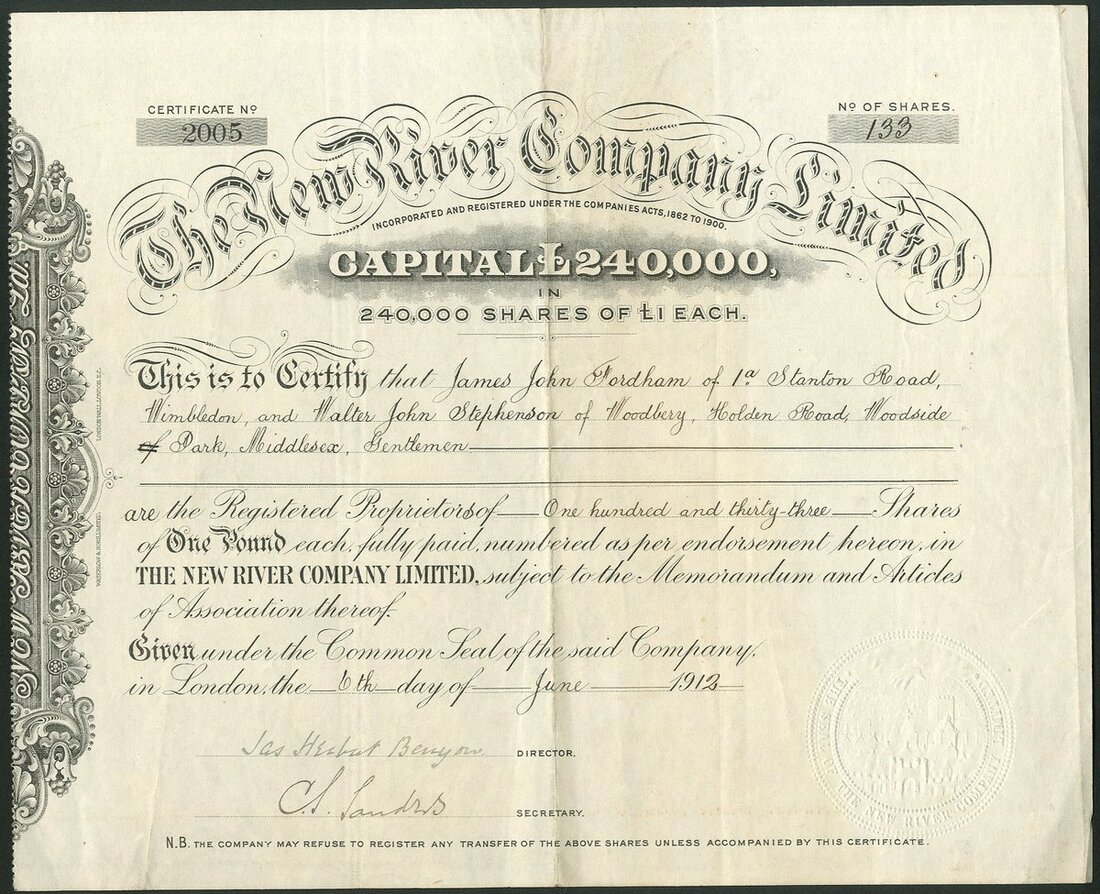 CERTIFICATE Nº
2005
Nº OF SHARES.
133
The New River Company Limited
INCORPORATED AND REGISTERED UNDER THE COMPANIES ACTS, 1862 TO 1900.
CAPITAL £240,000,
IN
240,000 SHARES OF £1 EACH.
This is to Certify that James John Fordham of 1a Stanton Road,
Wimbledon, and Walter John Stephenson of Woodbery, Holden Road, Woodside
of Park, Middlesex, Gentlemen
are the Registered Proprietors of One hundred and thirty-three Shares
of One Pound each, fully paid, numbered as per endorsement hereon, in
THE NEW RIVER COMPANY LIMITED, subject to the Memorandum and Articles
of Association thereof.
Given under the Common Seal of the said Company,
in London, the 6th day of June 1912
Jas Herbert Benyon. DIRECTOR.
C.S. Sanders SECRETARY.
N.B. THE COMPANY MAY REFUSE TO REGISTER ANY TRANSFER OF THE ABOVE SHARES UNLESS ACCOMPANIED BY THIS CERTIFICATE.
WATERLOW & SONS LIMITED, LONDON WALL, LONDON, E.C.
THE SEAL OF THE NEW RIVER COMPANY LIMITED